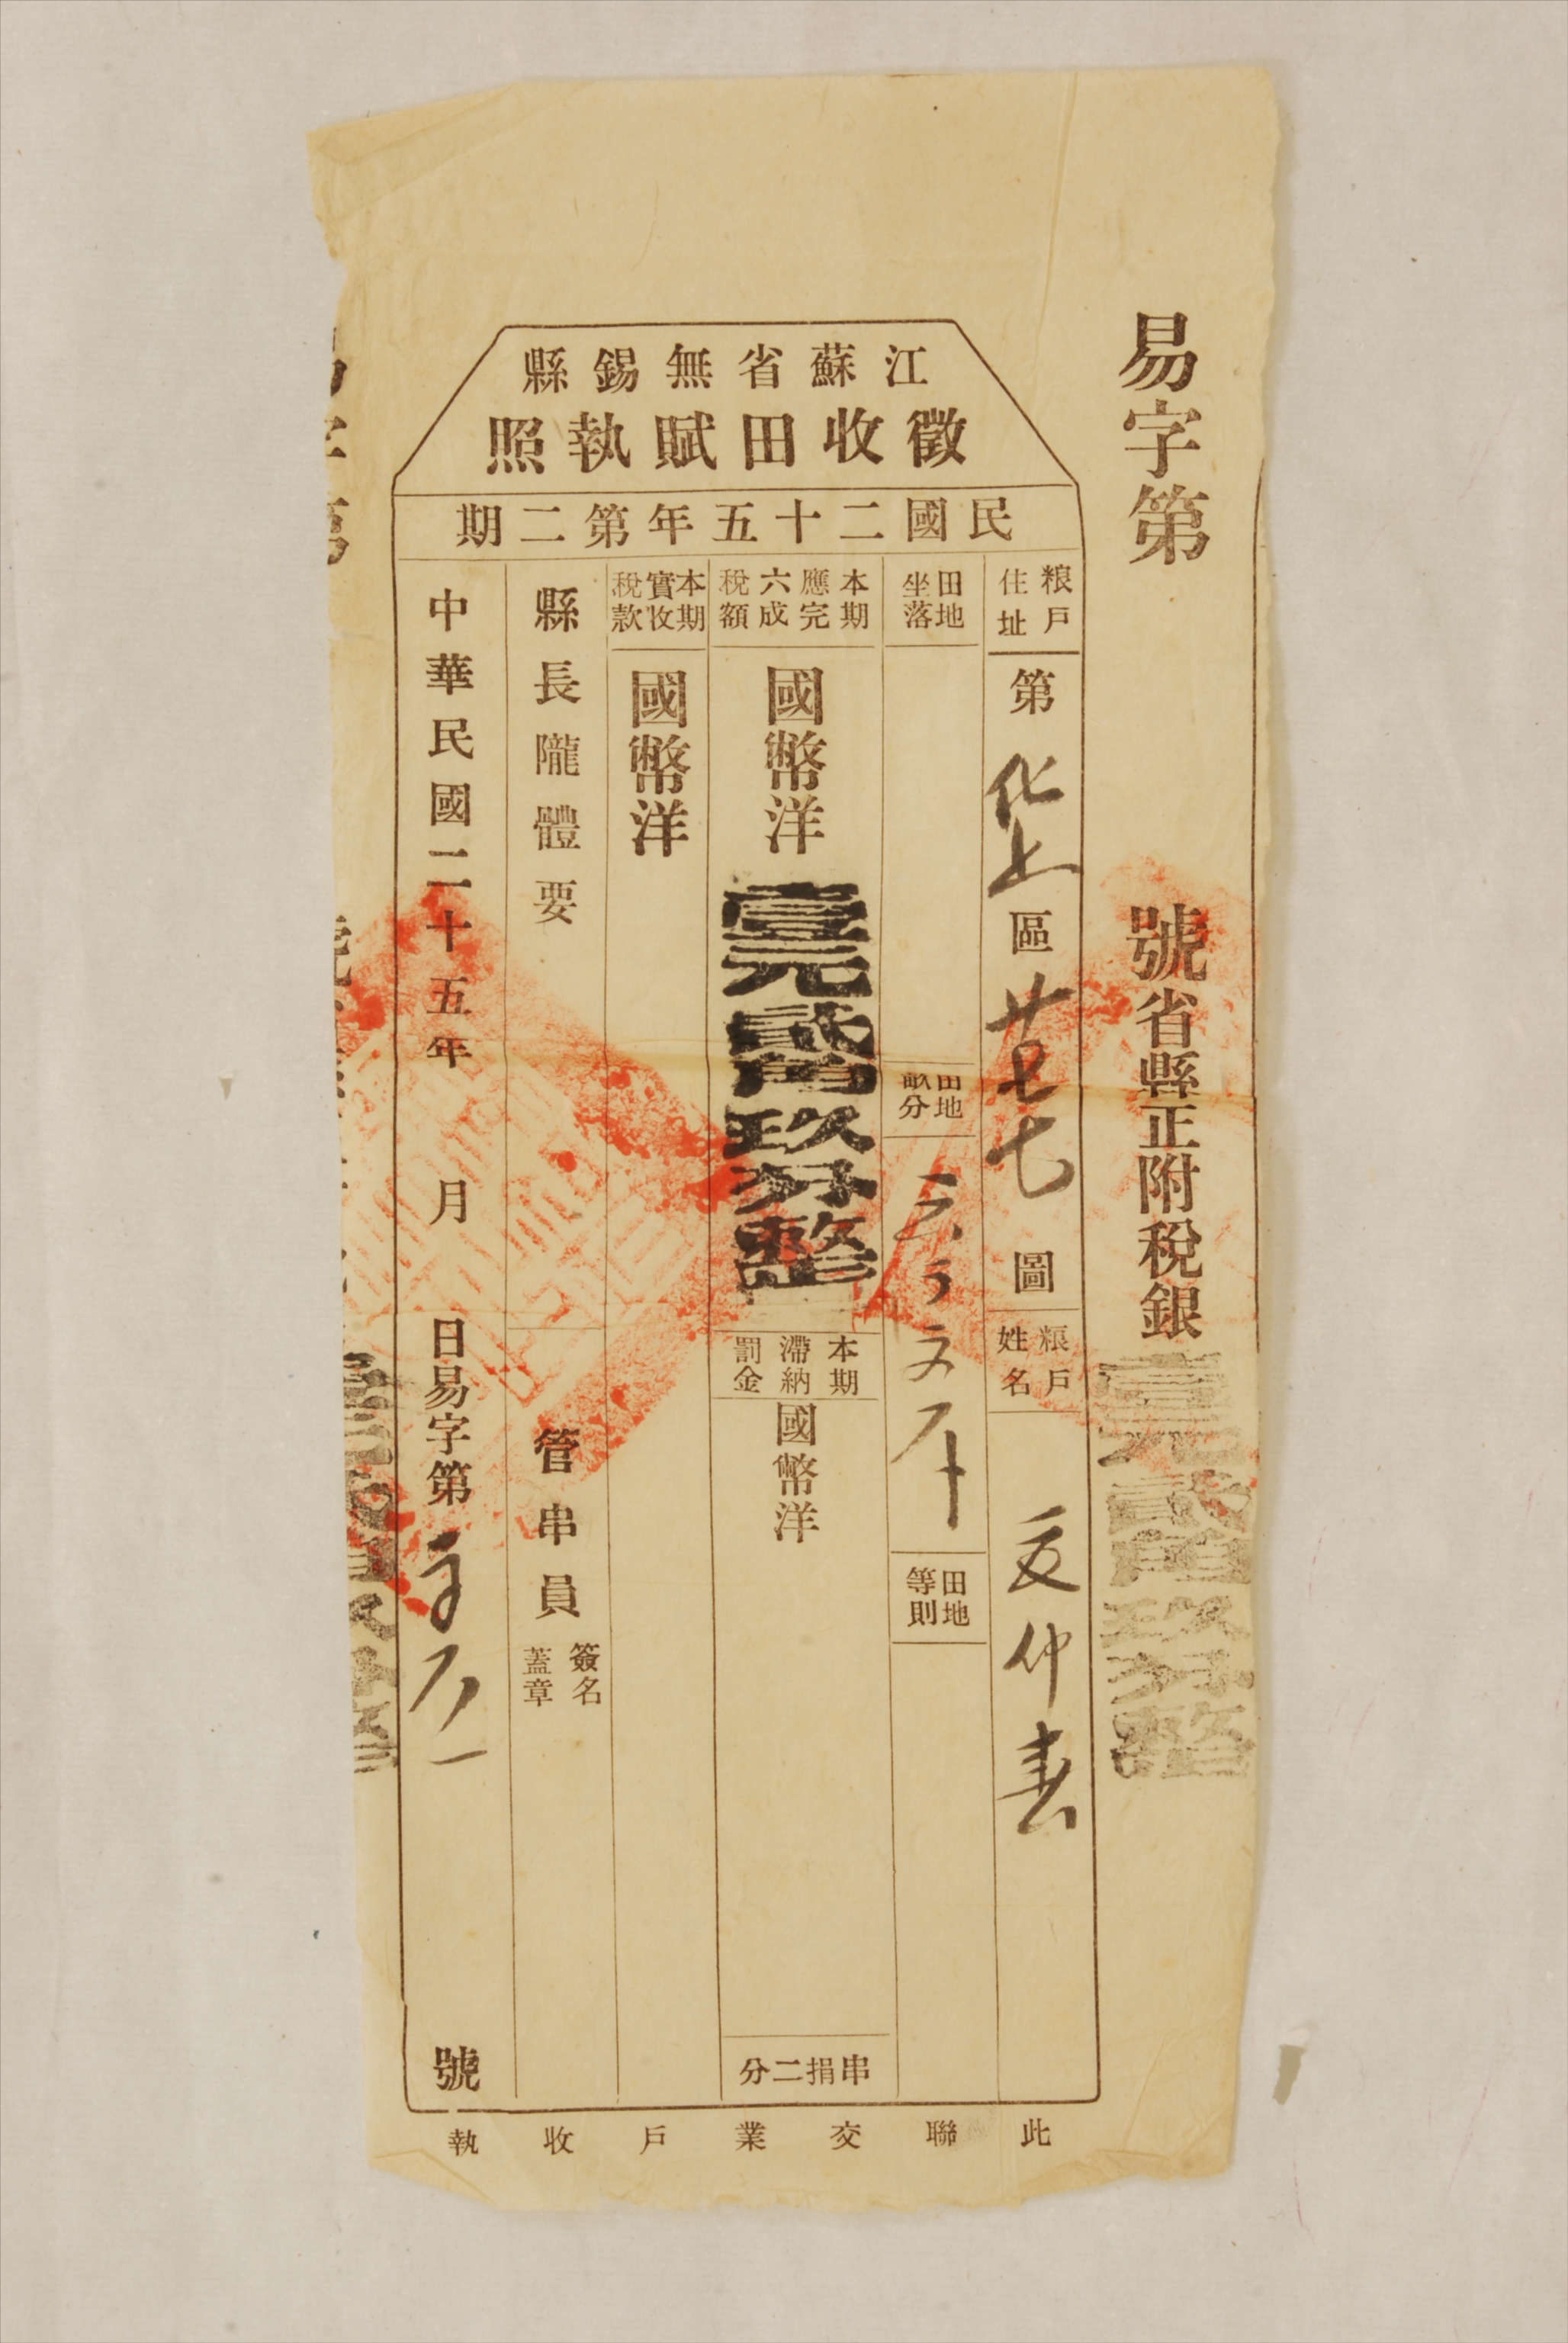 易字第 號省縣正附稅銀壹元貳角玖分整
江蘇省無錫縣
徵收田賦執照
民國二十五年第二期
粮戶住址
第 化上 區 廿七 圖
粮戶姓名
仲春
田地坐落
田地畝分
田地等則
本期應完六成稅額
國幣洋壹元貳角玖分整
本期滯納罰金
國幣洋
串捐二分
本期實收稅款
國幣洋
縣長隴體要
管串員簽名蓋章
中華民國二十五年 月 日易字第 號
此聯交業戶收執